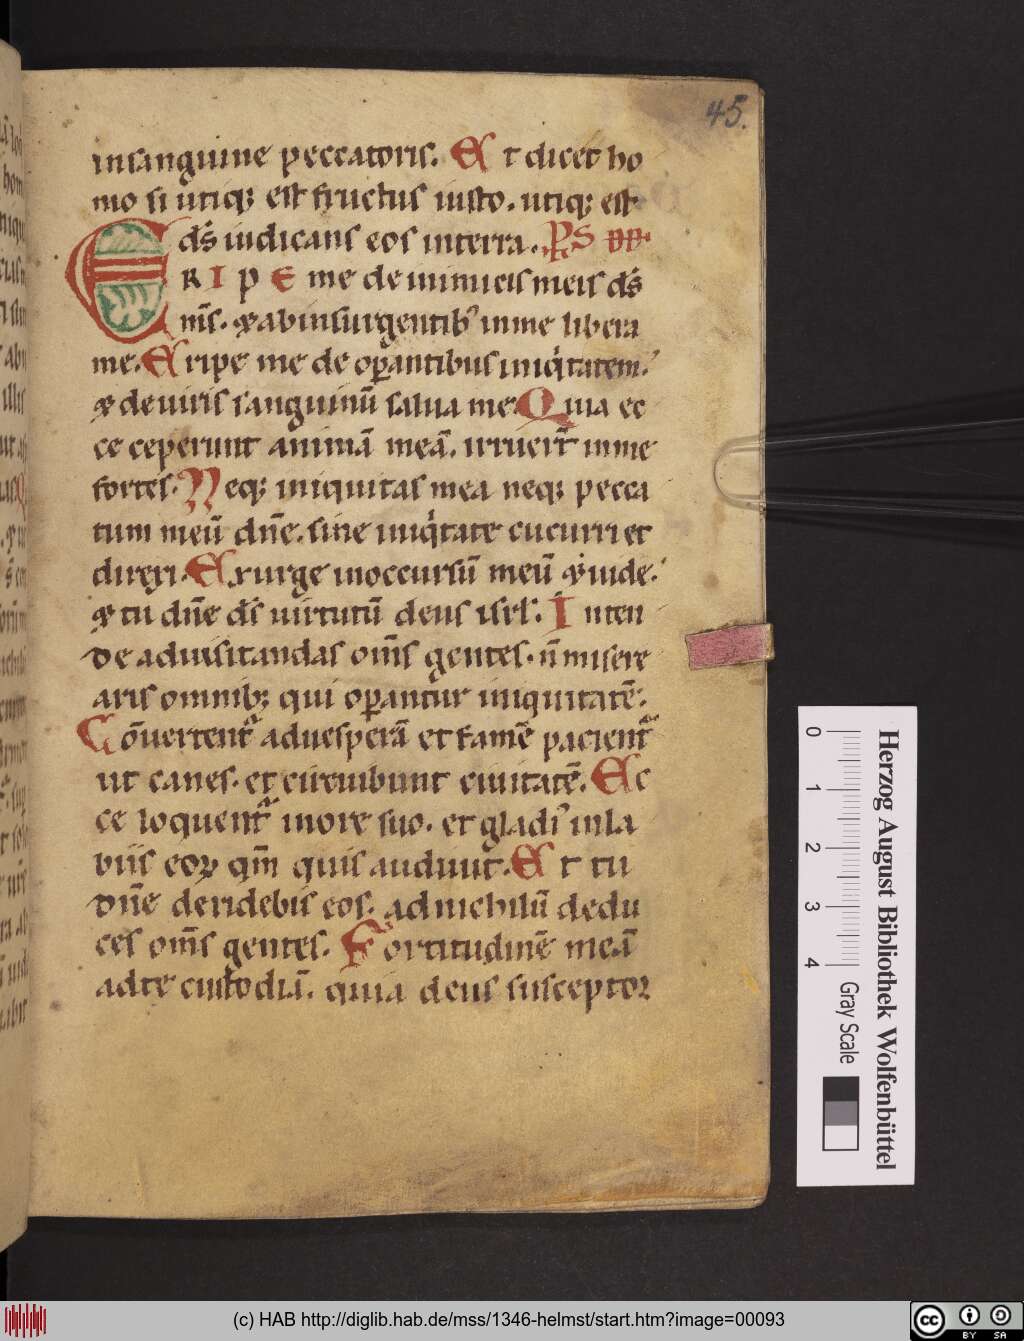 45.
insanguine peccatoris. Et dicet ho
mo si utiq; est fructus iusto. utiq; est
ds̄ iudicans eos interra. PS DD
ERIPE me de inimicis meis ds̄
ms̄. & abinsurgentib' inme libera
me. Eripe me de oꝑantibus iniq̇tatem.
& de uiris sanguinū salua me. Quia ec
ce ceperunt animā meā. irruer̄t inme
fortes. Neq; iniquitas mea neq; pecca
tum meū dn̄e. sine iniq̇tate cucurri et
direxi. Exurge inoccursū meū & uide.
& tu dn̄e ds̄ uirtutū deus isrl̄. Inten
de aduisitandas om̄s gentes. n̄ misere
aris omnib; qui oꝑantur iniquitatē.
Cōuertent᷑ aduesperā et famē pacient᷑
ut canes. et circuibunt ciuitatē. Ec
ce loquent᷑ inore suo. et gladi' inla
biis eoꝝ qm̄ quis audiuit. Et tu
dn̄e deridebis eos. adnichilū dedu
ces om̄s gentes. Fortitudinē meā
adte custodiā. quia deus susceptor
Herzog August Bibliothek Wolfenbüttel
0 1 2 3 4
Gray Scale
(c) HAB http://diglib.hab.de/mss/1346-helmst/start.htm?image=00093
cc BY SA